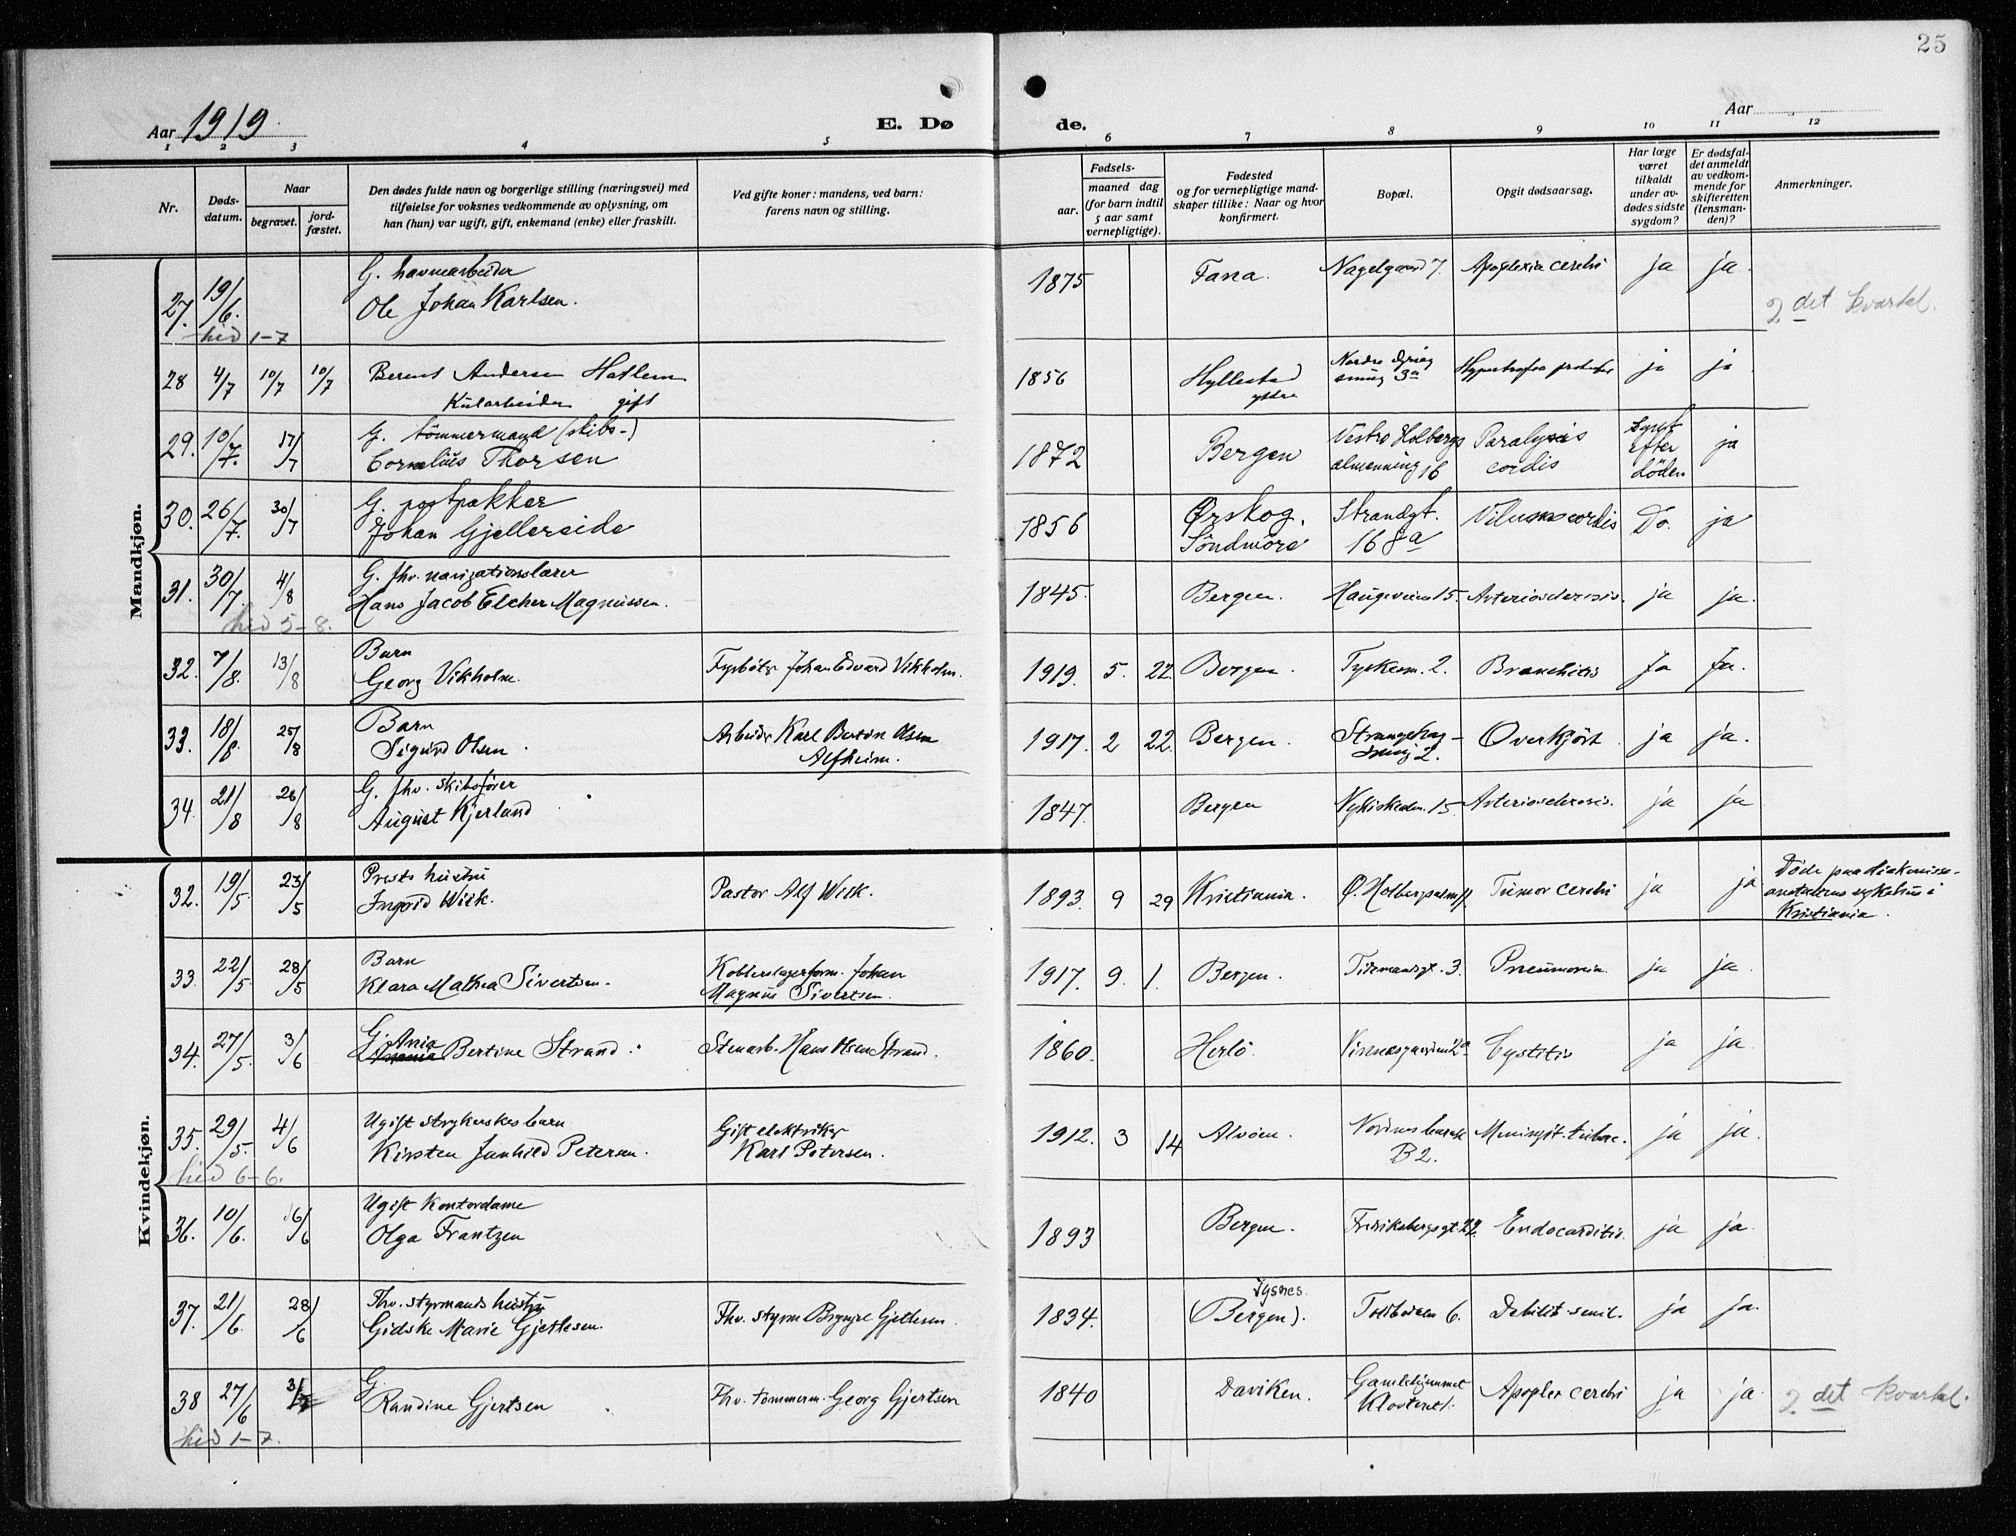 25
Aar 1919
E. Dø
de.
Aar
1 2 3 4 5 6 7 8 9 10 11 12
Nr.
Døds-
datum.
Naar
begravet.
jord-
fæstet.
Den dødes fulde navn og borgerlige stilling (næringsvei) med
tilføielse for voksnes vedkommende av oplysning, om
han (hun) var ugift, gift, enkemand (enke) eller fraskilt.
Ved gifte koner: mandens, ved barn:
farens navn og stilling.
Fødsels-
aar.
maaned dag
(for barn indtil
5 aar samt
vernepligtige).
Fødested
og for vernepligtige mand-
skaper tillike: Naar og hvor
konfirmert.
Bopæl.
Opgit dødsaarsag.
Har læge
været
tilkaldt
under av-
dødes sidste
sygdom?
Er dødsfal-
det anmeldt
av vedkom-
mende for
skifteretten
(lensman-
den)?
Anmerkninger.
Mandkjøn.
27. 19/6. G. havnearbeider
Ole Johan Karlsen. 1875 Fana. Nagelgaard 7. Apoplexia cerebri ja ja.
hid 1-7
2det kvartal.
28 4/7 10/7 10/7 Berent Andersen Hatlem
Kularbeider gift 1856 Hyllestad
yttre Nordre
3a ja ja
29. 10/7. 17/7 G. tømmermand (skibs-)
Cornelius Thorsen 1872 Bergen Vestre Holbergs
almenning 16 Paralysis
cordis Synt
efter
døden ja
30. 26/7. 30/7 G. postpakker
Johan Gjellerside 1856 Ørskog,
Söndmöre Strandgt.
168a cordis Do. ja
31. 30/7 4/8 G. fhv. navigationslærer
Hans Jacob Elcher Magnussen. 1845. Bergen. Haugeveien 15. Arteriosclerosis. ja ja.
hid 5-8.
32. 7/8. 13/8 Barn
Georg Vikholm. Fyrbøter Johan Edvard Vikholm. 1919. 5. 22. Bergen. Tyskesm. 2. Bronchitis Ja Ja.
33. 18/8. 25/8 Barn
Sigurd Olsen. Arbeider Karl Olsen
Alfheim. 1917. 2 22. Bergen. Strangehag-
2. Overkjört ja ja.
34. 21/8 26/8 G. fhv. skibsfører
August Kjerland 1847. Bergen Nykirkealm. 15. Arteriosclerosis. ja ja
Kvindekjøn.
32. 19/5. 23/5 Prests hustru
Ingrid Wisk. Pastor Alf Wisk. 1893. 9 29 Kristiania. Ø. Holbergsalm 11. Tumor cerebri ja ja Döde paa diakonisse-
anstaltens sykehus i
Kristiania.
33. 22/5. 28/5 Barn
Klara Mathea Sivertsen. Kobberslagerform. Johan
Magnus Sivertsen. 1917. 9. 1. Bergen. Tidemandsgt. 3. Pneumonia ja ja.
34. 27/5. 3/6 G. Ania
Bertine Strand. Stenarb. Hans Olsen Strand. 1860. Herlö. Cystitis ja ja.
35. 29/5. 4/6 Ugift strykerskes barn
Kirsten Junhild Petersen. Gift elektriker
Karl Petersen. 1912. 3 14 Alvöen.
B2. Meningit. tuberc. ja ja.
hid 6-6.
36. 10/6. 16/6 Ugift Kontordame
Olga Frantzen 1893 Bergen. Fredriksbergsgt. 22. Endocarditis. ja ja.
37. 21/6. 28/6 Fhv. styrmands hustru
Gidske Marie Gjettesen. Fhv. styrm Gjettesen. 1834. Tysnes.
(Bergen). Toldboden 6. Debilit. senil. ja ja.
38 27/6 3/7 G.
Randine Gjertsen Fhv. tømmerm. Georg Gjertsen 1840 Daviken. Gamlehjemmet
Klosteret. Apoplex cerebri ja ja. 2det kvartal.
hid 1-7.